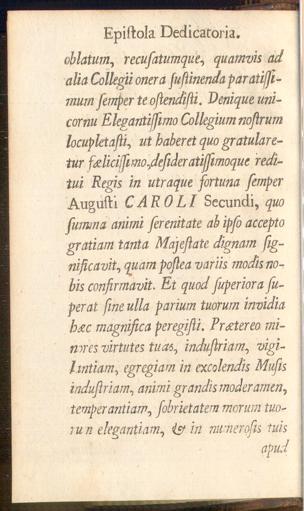 Epiſtola Dedicatoria.
oblatum, recuſatumque, quamvis ad
alia Collegii onera ſuſtinenda paratiſſi-
mum ſemper te oſtendiſti. Denique uni-
cornu Elegantiſſimo Collegium noſtrum
locupletaſti, ut haberet quo gratulare-
tur fœliciſſimo, deſideratiſſimoque redi-
tui Regis in utraque fortuna ſemper
Auguſti CAROLI Secundi, quo
ſumma animi ſerenitate ab ipſo accepto
gratiam tanta Majeſtate dignam ſig-
nificavit, quam poſtea variis modis no-
bis confirmavit. Et quod ſuperiora ſu-
perat ſine ulla parium tuorum invidia
hæc magnifica peregiſti. Prætereo mi-
nores virtutes tuas, induſtriam, vigi-
lantiam, egregiam in excolendis Muſis
induſtriam, animi grandis moderamen,
temperantiam, ſobrietatem morum tuo-
run elegantiam, & in numeroſis tuis
apud